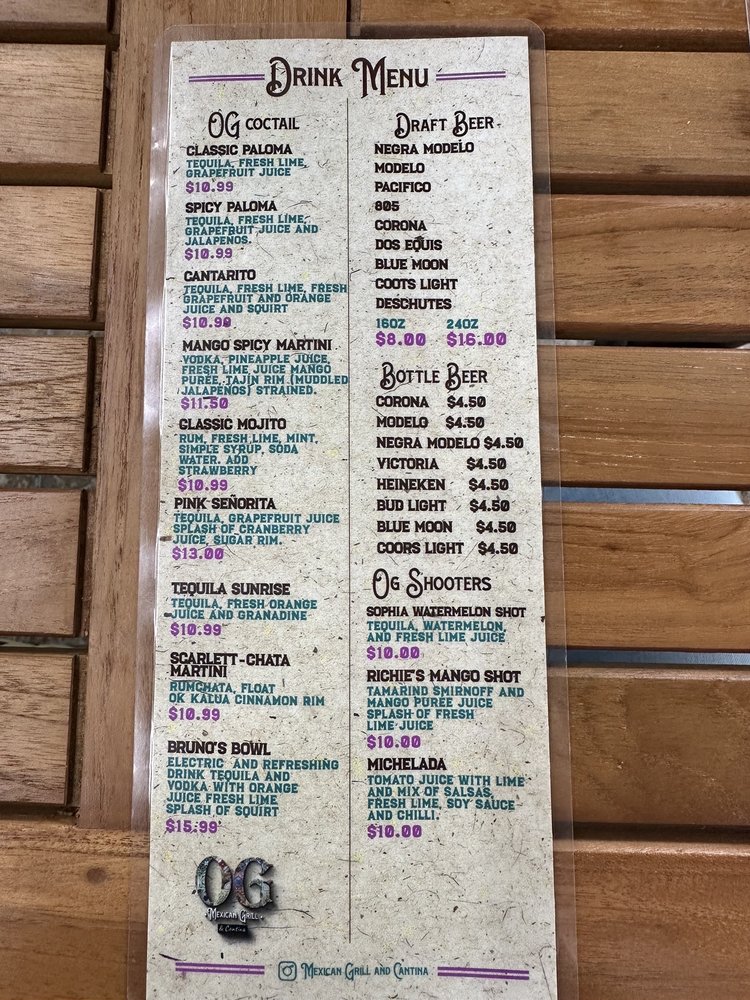 DRINK MENU
OG COCTAIL
CLASSIC PALOMA
TEQUILA, FRESH LIME,
GRAPEFRUIT JUICE
$10.99
SPICY PALOMA
TEQUILA, FRESH LIME,
GRAPEFRUIT JUICE AND
JALAPEÑOS.
$10.99
CANTARITO
TEQUILA, FRESH LIME, FRESH
GRAPEFRUIT AND ORANGE
JUICE AND SQUIRT
$10.99
MANGO SPICY MARTINI
VODKA, PINEAPPLE JUICE,
FRESH LIME JUICE MANGO
PURÉE, TAJÍN RIM (MUDDLED
JALAPEÑOS) STRAINED.
$11.50
CLASSIC MOJITO
RUM, FRESH LIME, MINT,
SIMPLE SYRUP, SODA
WATER. ADD
STRAWBERRY
$10.99
PINK SEÑORITA
TEQUILA, GRAPEFRUIT JUICE
SPLASH OF CRANBERRY
JUICE, SUGAR RIM.
$13.00
TEQUILA SUNRISE
TEQUILA, FRESH ORANGE
JUICE AND GRANADINE
$10.99
SCARLETT-CHATA
MARTINI
RUMCHATA, FLOAT
OK KALUA CINNAMON RIM
$10.99
BRUNO'S BOWL
ELECTRIC AND REFRESHING
DRINK TEQUILA AND
VODKA WITH ORANGE
JUICE FRESH LIME
SPLASH OF SQUIRT
$15.99
DRAFT BEER
NEGRA MODELO
MODELO
PACIFICO
805
CORONA
DOS EQUIS
BLUE MOON
COOTS LIGHT
DESCHUTES
16OZ 24OZ
$8.00 $16.00
BOTTLE BEER
CORONA $4.50
MODELO $4.50
NEGRA MODELO $4.50
VICTORIA $4.50
HEINEKEN $4.50
BUD LIGHT $4.50
BLUE MOON $4.50
COORS LIGHT $4.50
OG SHOOTERS
SOPHIA WATERMELON SHOT
TEQUILA, WATERMELON,
AND FRESH LIME JUICE
$10.00
RICHIE'S MANGO SHOT
TAMARIND SMIRNOFF AND
MANGO PURÉE JUICE
SPLASH OF FRESH
LIME JUICE
$10.00
MICHELADA
TOMATO JUICE WITH LIME
AND MIX OF SALSAS,
FRESH LIME, SOY SAUCE
AND CHILLI.
$10.00
OG
MEXICAN GRILL
& Cantina
MEXICAN GRILL AND CANTINA